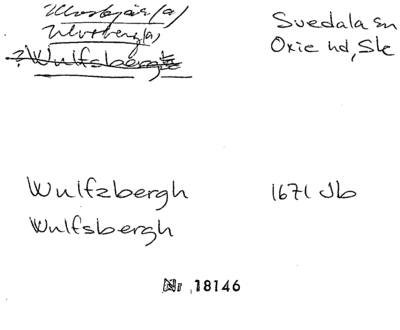 Ulvsbjär(a)
Ulvsberg(a)
? Wulfsbergh
Svedala sn
Oxie hd, Sk
Wulfzbergh 1671 Jb
Wulfsbergh
Nr 18146